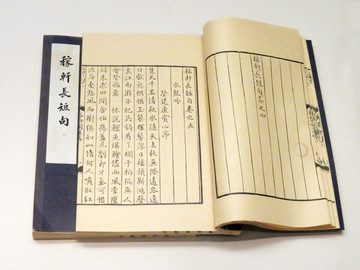 稼軒長短句
稼軒長短句卷之四
稼軒長短句卷之五
水龍吟
登建康賞心亭
楚天千里清秋水隨天去秋無際遙岑遠
目獻愁供恨玉簪螺髻落日樓頭斷鴻聲
裏江南游子把吳鉤看了欄干拍徧無人
會登臨意 休說鱸魚堪鱠儘西風季鷹
歸未求田問舍怕應羞見劉郎才氣可惜
流年憂愁風雨樹猶如此倩何人喚取紅